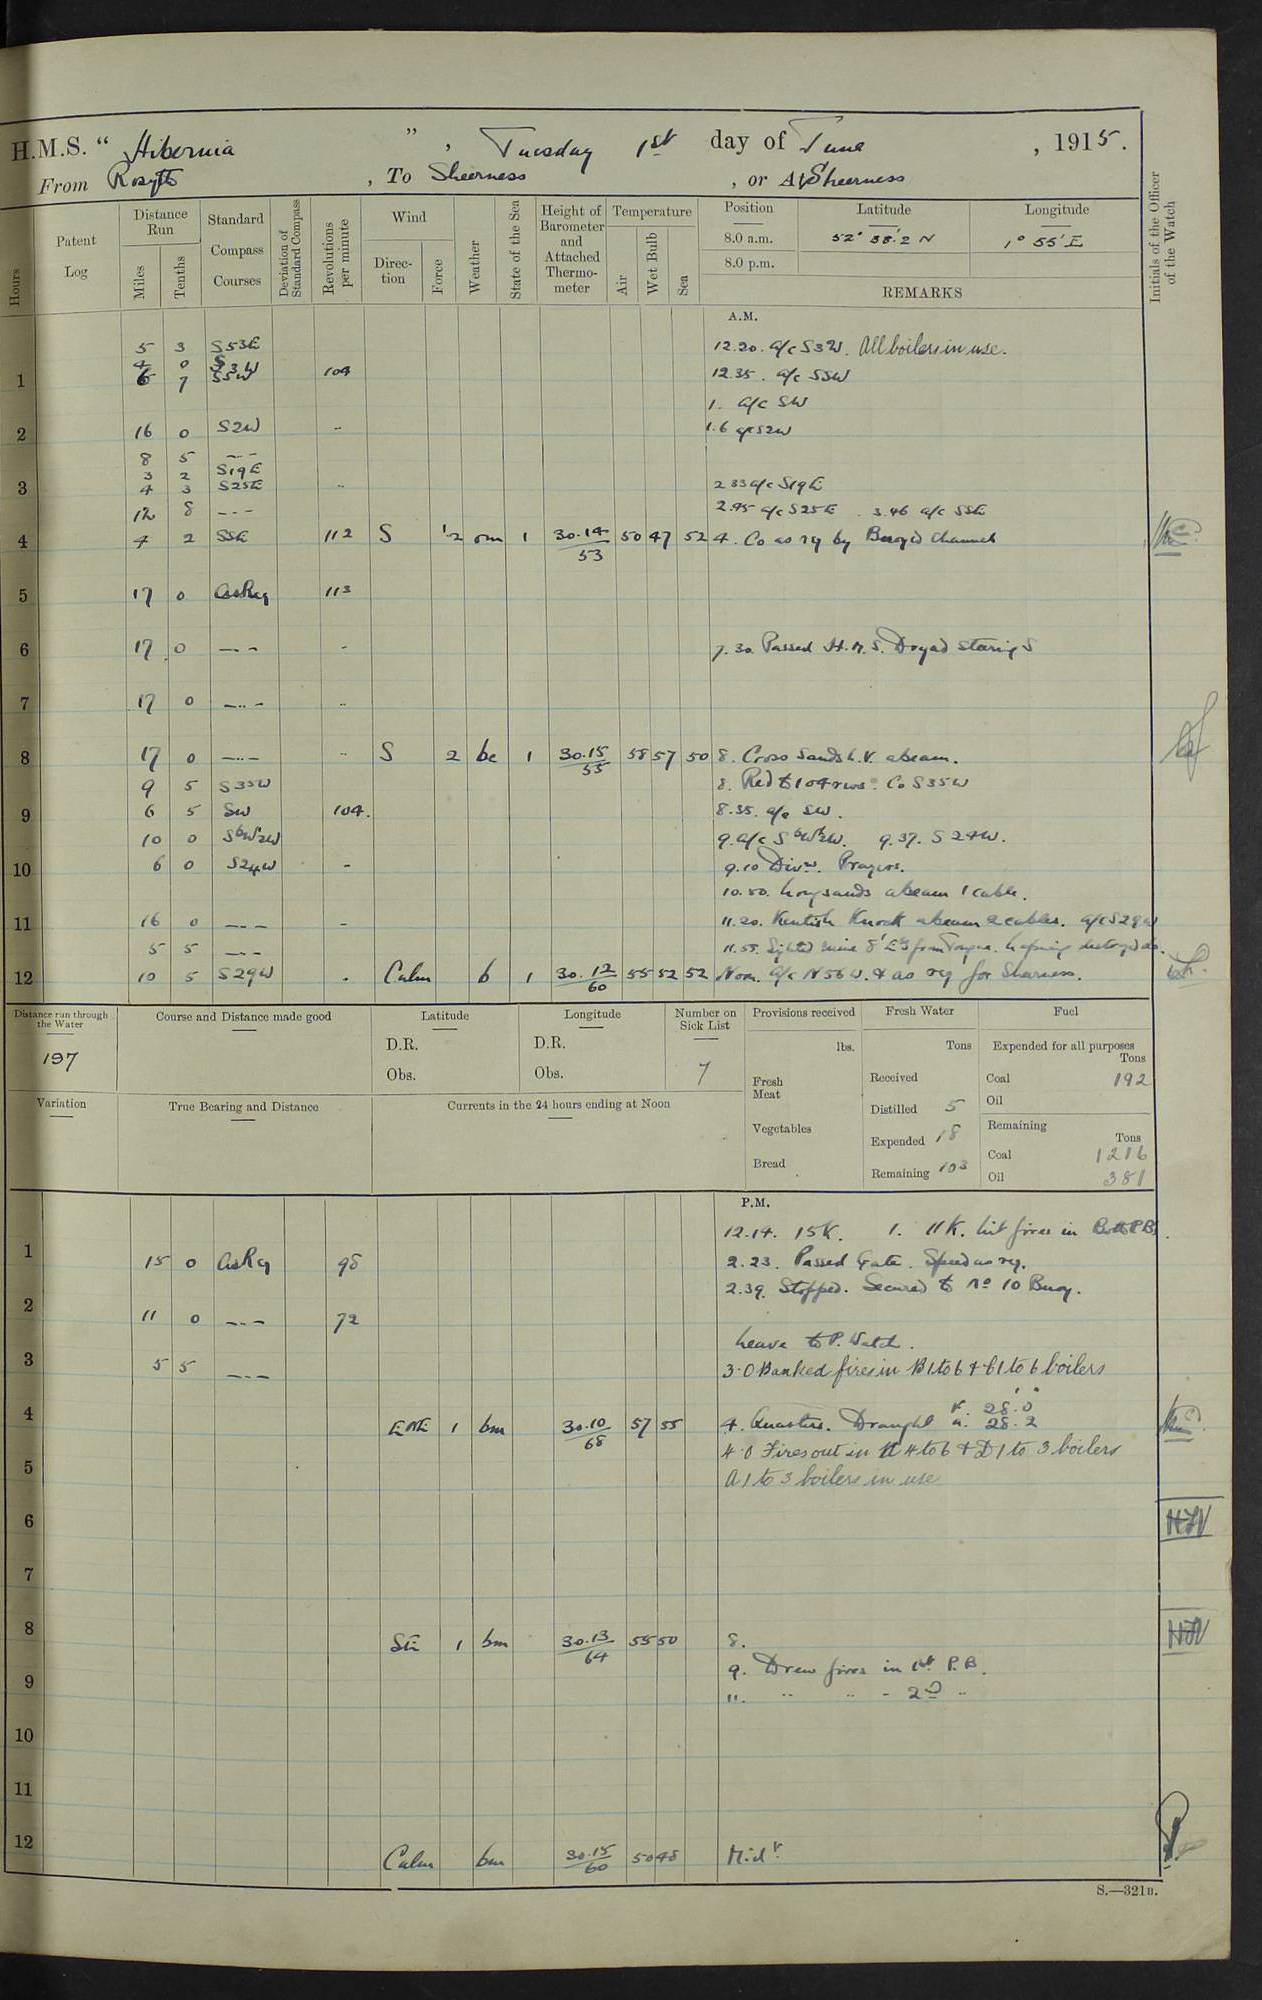 H.M.S. “ Hibernia ” , Tuesday 1st day of June , 1915.
From Rosyth , To Sheerness , or At Sheerness
Hours
Patent Log
Distance Run
Miles
Tenths
Standard Compass Courses
Deviation of Standard Compass
Revolutions per minute
Wind
Direction
Force
Weather
State of the Sea
Height of Barometer and Attached Thermometer
Temperature
Air
Wet Bulb
Sea
Position Latitude Longitude
8.0 a.m. 52° 38'.2 N 1° 55' E
8.0 p.m.
REMARKS
Initials of the Officer of the Watch
A.M.
5 3 S53E 12.20. a/c S3W. All boilers in use.
4 0 S3W
1 6 7 S5W 104 12.35. a/c S5W
1. a/c SW
2 16 0 S2W " 1.6 a/c S2W
8 5 -"-
3 2 S19E
3 4 3 S25E " 2 33 a/c S19E
12 8 -"- 2.45 a/c S25E . 3.46 a/c SSE
4 4 2 SSE 112 S 1/2 om 1 30.14/53 50 47 52 4. Co as req by channel
5 17 0 As Req 113
6 17 0 -"- " 7.30. Passed H.M.S. Dryad steering S
7 17 0 -"- "
8 17 0 -"- " S 2 bc 1 30.15/55 58 57 50 8. Cross Sands L.V. abeam.
9 5 S35W 8. Red to 104 revs. Co S35W
9 6 5 SW 104. 8.35. a/c SW.
10 0 SbW½W 9. a/c SbW½W. 9.37. S24W.
10 6 0 S24W " 9.10 Divns. Prayers.
10.50. Longsands abeam 1 cable.
11 16 0 -"- " 11.20. Kentish Knock abeam 2 cables. a/c S29W
5 5 -"- 11.55. Sighted mine 8' E'd from Tongue. destroyed do.
12 10 5 S29W " Calm b 1 30.12/60 55 52 52 Noon. a/c N56W. & as req for Sheerness.
Distance run through the Water
197
Course and Distance made good
Latitude
D.R.
Obs.
Longitude
D.R.
Obs.
Number on Sick List
7
Provisions received
lbs.
Fresh Meat
Vegetables
Bread
Fresh Water
Tons
Received
Distilled 5
Expended 18
Remaining 103
Fuel
Expended for all purposes
Tons
Coal 192
Oil
Remaining
Tons
Coal 1216
Oil 381
Variation
True Bearing and Distance
Currents in the 24 hours ending at Noon
P.M.
12.14. 15K. 1. 11K. lit fires in Both P.Bs.
1 15 0 As Req 98 2.23. Passed Gate. Speed as req.
2.39. Stopped. Secured to No 10 Buoy.
2 11 0 -"- 72
Leave to P. Watch.
3 5 5 -"- 3.0 Banked fires in B1 to 6 & C1 to 6 boilers
4 ENE 1 bm 30.10/68 57 55 4. Quarters. Draught F. 28'.0" A. 28.2
4.0 Fires out in A 4 to 6 & D 1 to 3 boilers
5 A 1 to 3 boilers in use
6
HJV
7
8 SE 1 bm 30.13/64 55 50 8.
HJV
9. Drew fires in 1st P.B.
9
11. " " " 2nd "
10
11
12 Calm bm 30.15/60 50 48 Midt.
S.—321B.